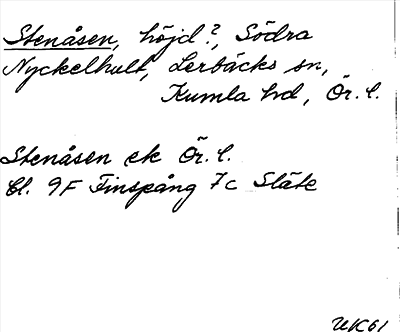 Stenåsen, höjd?, Södra
Nyckelhult, Lerbäcks sn,
Kumla hd, Ör. l.
Stenåsen ek Ör. l.
Bl. 9F Finspång 7c Släte
UK61